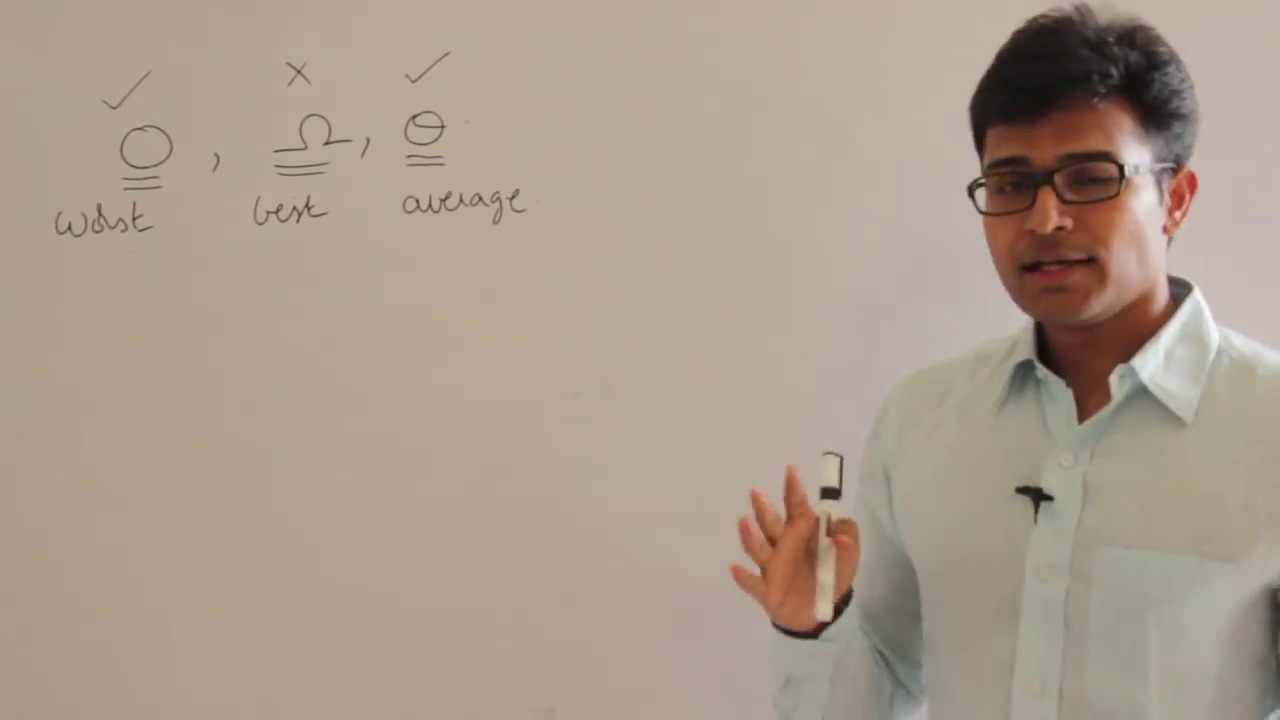 ✓ × ✓
O , Ω , Θ
worst best average